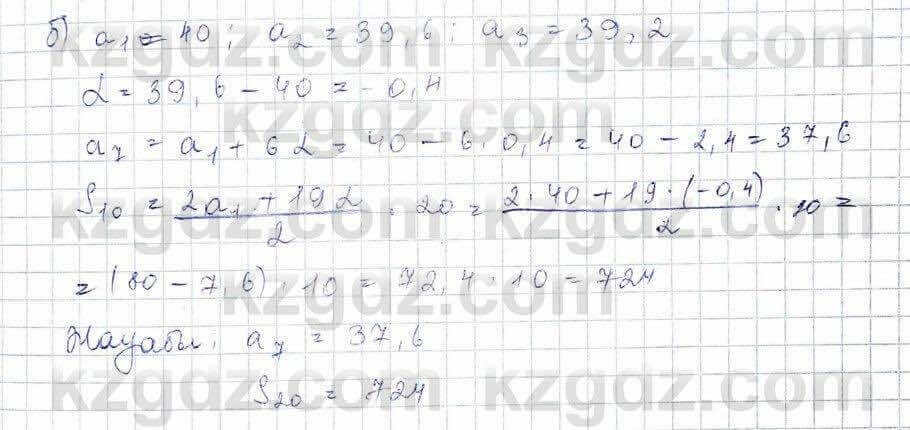 б) a₁ = 40; a₂ = 39,6; a₃ = 39,2
d = 39,6 - 40 = -0,4
a₇ = a₁ + 6d = 40 - 6 · 0,4 = 40 - 2,4 = 37,6
S₁₀ = (2a₁ + 19d)/2 · 20 = (2 · 40 + 19 · (-0,4))/2 · 20 =
= (80 - 7,6) · 10 = 72,4 · 10 = 724
Жауабы: a₇ = 37,6
S₂₀ = 724
kzgdz.com